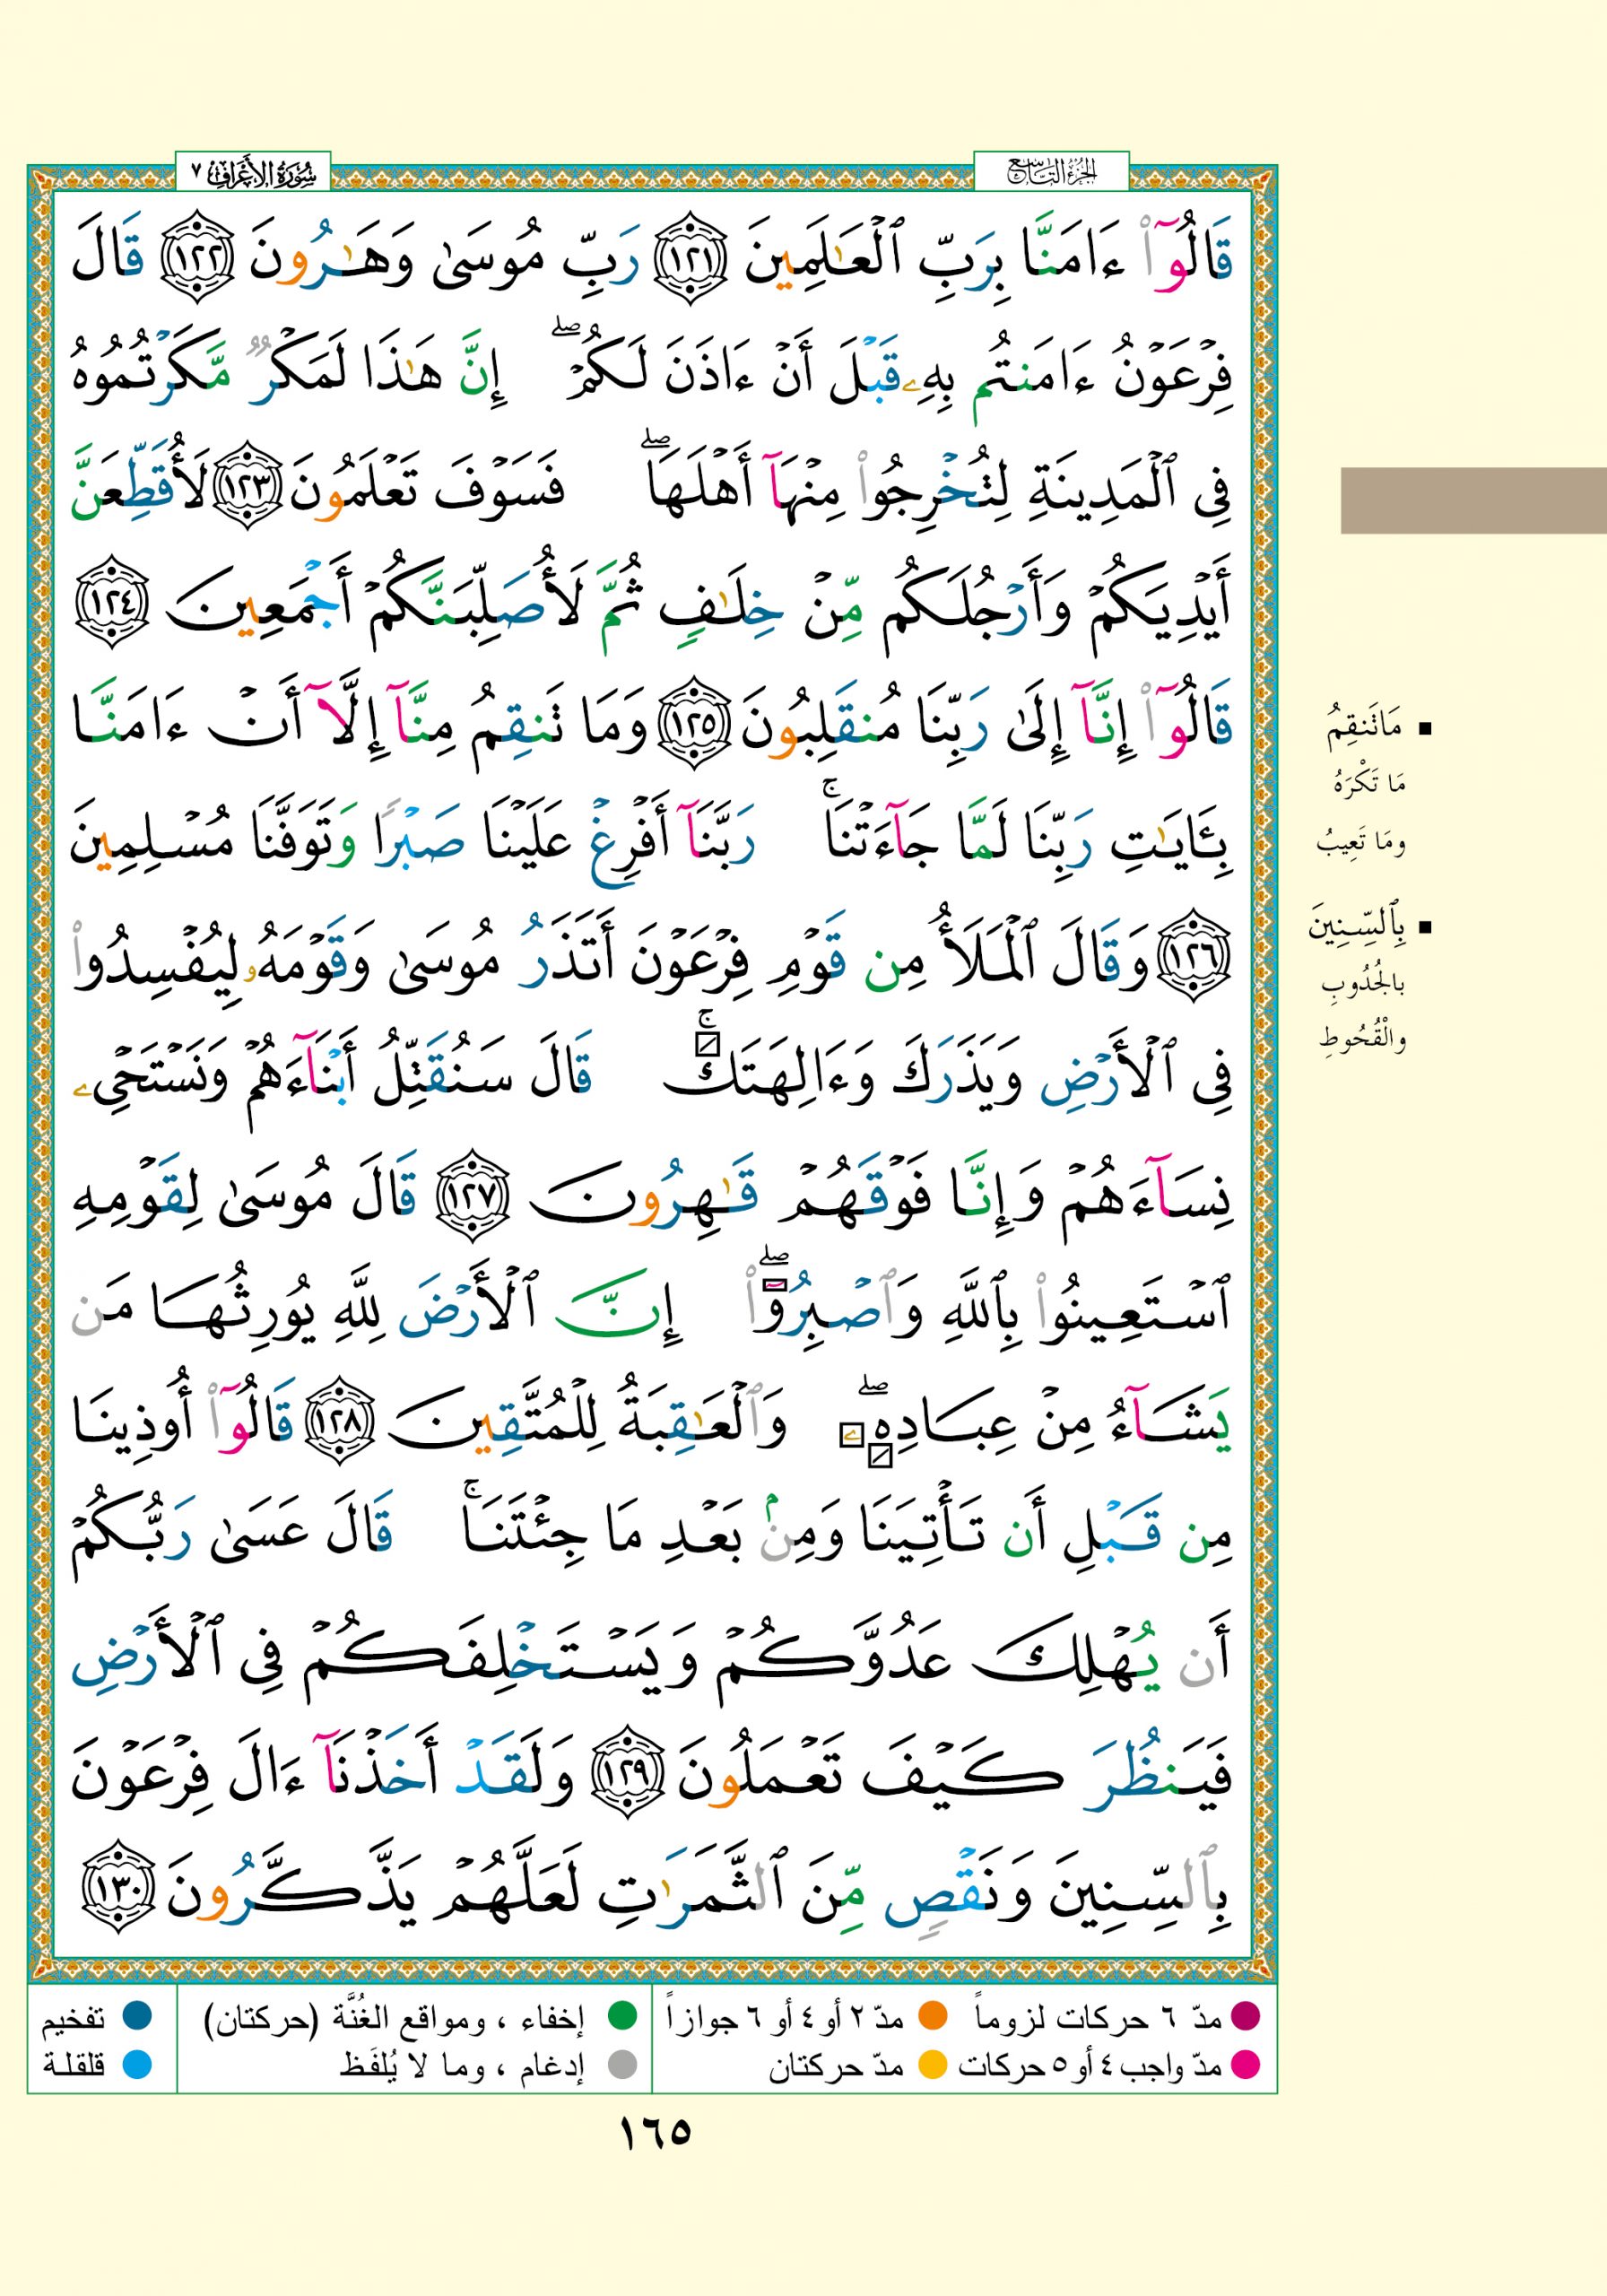 الجزء التاسع
سورة الأعراف ٧
قَالُوٓا۟ ءَامَنَّا بِرَبِّ ٱلْعَـٰلَمِينَ ١٢١ رَبِّ مُوسَىٰ وَهَـٰرُونَ ١٢٢ قَالَ
فِرْعَوْنُ ءَامَنتُم بِهِۦ قَبْلَ أَنْ ءَاذَنَ لَكُمْ ۖ إِنَّ هَـٰذَا لَمَكْرٌ مَّكَرْتُمُوهُ
فِى ٱلْمَدِينَةِ لِتُخْرِجُوا۟ مِنْهَآ أَهْلَهَا ۖ فَسَوْفَ تَعْلَمُونَ ١٢٣ لَأُقَطِّعَنَّ
أَيْدِيَكُمْ وَأَرْجُلَكُم مِّنْ خِلَـٰفٍ ثُمَّ لَأُصَلِّبَنَّكُمْ أَجْمَعِينَ ١٢٤
قَالُوٓا۟ إِنَّآ إِلَىٰ رَبِّنَا مُنقَلِبُونَ ١٢٥ وَمَا تَنقِمُ مِنَّآ إِلَّآ أَنْ ءَامَنَّا
بِـَٔايَـٰتِ رَبِّنَا لَمَّا جَآءَتْنَا ۚ رَبَّنَآ أَفْرِغْ عَلَيْنَا صَبْرًا وَتَوَفَّنَا مُسْلِمِينَ
١٢٦ وَقَالَ ٱلْمَلَأُ مِن قَوْمِ فِرْعَوْنَ أَتَذَرُ مُوسَىٰ وَقَوْمَهُۥ لِيُفْسِدُوا۟
فِى ٱلْأَرْضِ وَيَذَرَكَ وَءَالِهَتَكَ ۚ قَالَ سَنُقَتِّلُ أَبْنَآءَهُمْ وَنَسْتَحْىِۦ
نِسَآءَهُمْ وَإِنَّا فَوْقَهُمْ قَـٰهِرُونَ ١٢٧ قَالَ مُوسَىٰ لِقَوْمِهِ
ٱسْتَعِينُوا۟ بِٱللَّهِ وَٱصْبِرُوٓا۟ ۖ إِنَّ ٱلْأَرْضَ لِلَّهِ يُورِثُهَا مَن
يَشَآءُ مِنْ عِبَادِهِۦ ۖ وَٱلْعَـٰقِبَةُ لِلْمُتَّقِينَ ١٢٨ قَالُوٓا۟ أُوذِينَا
مِن قَبْلِ أَن تَأْتِيَنَا وَمِنۢ بَعْدِ مَا جِئْتَنَا ۚ قَالَ عَسَىٰ رَبُّكُمْ
أَن يُهْلِكَ عَدُوَّكُمْ وَيَسْتَخْلِفَكُمْ فِى ٱلْأَرْضِ
فَيَنظُرَ كَيْفَ تَعْمَلُونَ ١٢٩ وَلَقَدْ أَخَذْنَآ ءَالَ فِرْعَوْنَ
بِٱلسِّنِينَ وَنَقْصٍ مِّنَ ٱلثَّمَرَٰتِ لَعَلَّهُمْ يَذَّكَّرُونَ ١٣٠
■ مَا تَنقِمُ
مَا تَكْرَهُ
ومَا تَعِيبُ
■ بِٱلسِّنِينَ
بالجُدُوبِ
والْقُحُوطِ
مدّ ٦ حركات لزوماً مدّ ٢ أو ٤ أو ٦ جوازاً إخفاء ، ومواقع الغُنَّة (حركتان) تفخيم
مدّ واجب ٤ أو ٥ حركات مدّ حركتان إدغام ، وما لا يُلفَظ قلقلة
١٦٥